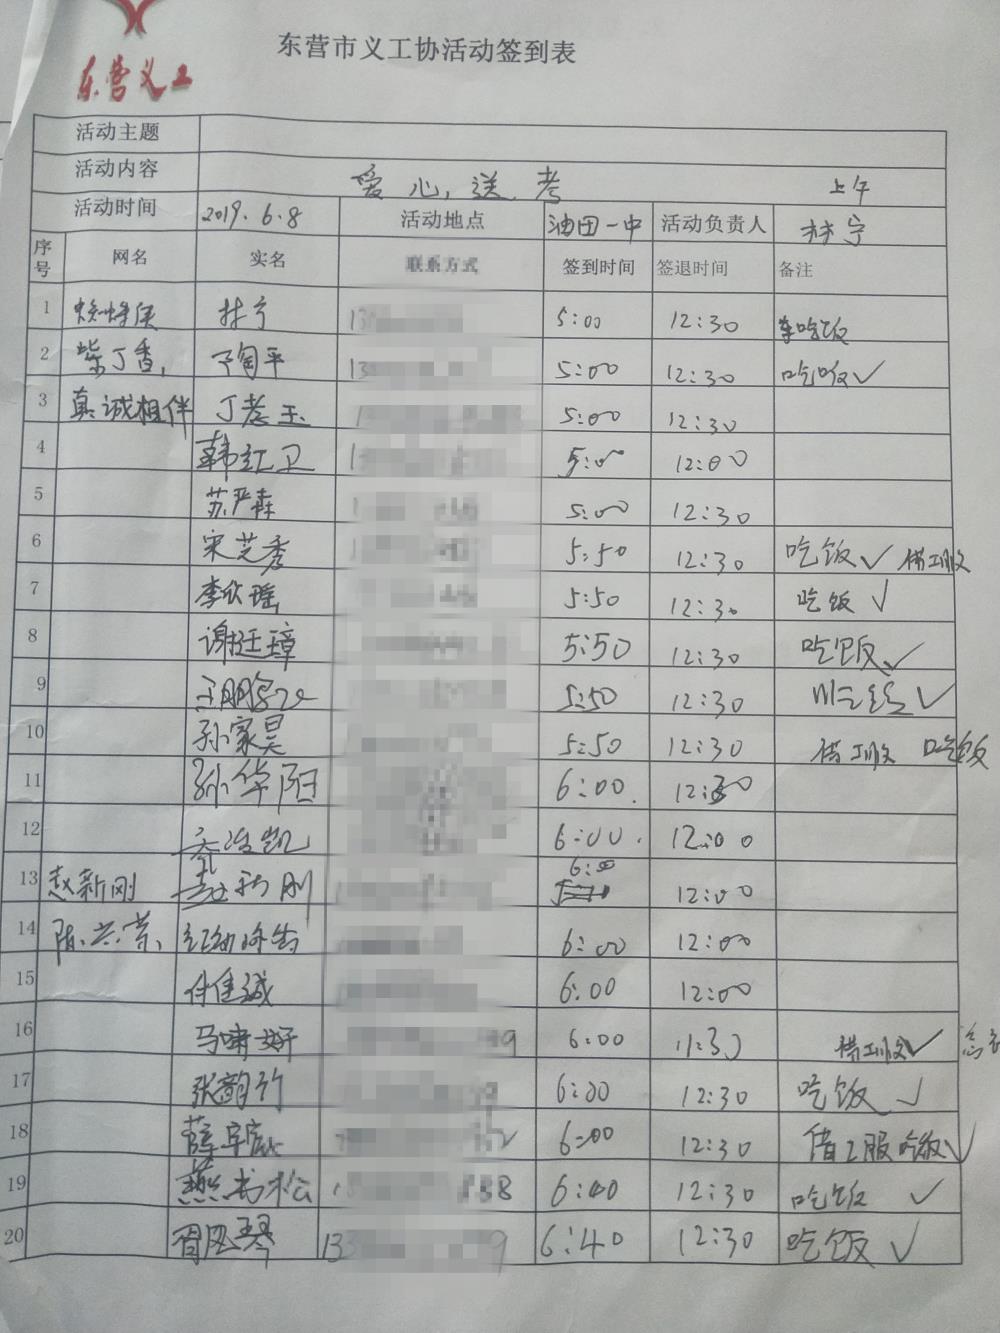 东营义工
东营市义工协活动签到表
活动主题
活动内容 爱心送考 上午
活动时间 2019.6.8 活动地点 油田一中 活动负责人 林宁
序号 网名 实名 联系方式 签到时间 签退时间 备注
1 林宁 13 5:00 12:30 吃饭
2 紫丁香 丁陶平 13 5:00 12:30 吃饭✓
3 真诚相伴 丁孝玉 5:00 12:30
4 韩红卫 5:00 12:00
5 苏严森 5:00 12:30
6 宋芝秀 5:50 12:30 吃饭✓ 借工服
7 李欣瑶 5:50 12:30 吃饭✓
8 谢廷璋 5:50 12:30 吃饭✓
9 5:50 12:30 ✓
10 孙家昊 5:50 12:30 借工服 吃饭
11 孙华阳 6:00 12:30
12 6:00 12:00
13 赵新刚 赵新刚 6:00 12:00
14 陈兴荣 6:00 12:00
15 付佳诚 6:00 12:00
16 马啸妍 6:00 11:30 借工服✓
17 张韵竹 6:00 12:30 吃饭✓
18 6:00 12:30 借工服 吃饭✓
19 燕书松 38 6:40 12:30 吃饭✓
20 13 9 6:40 12:30 吃饭✓